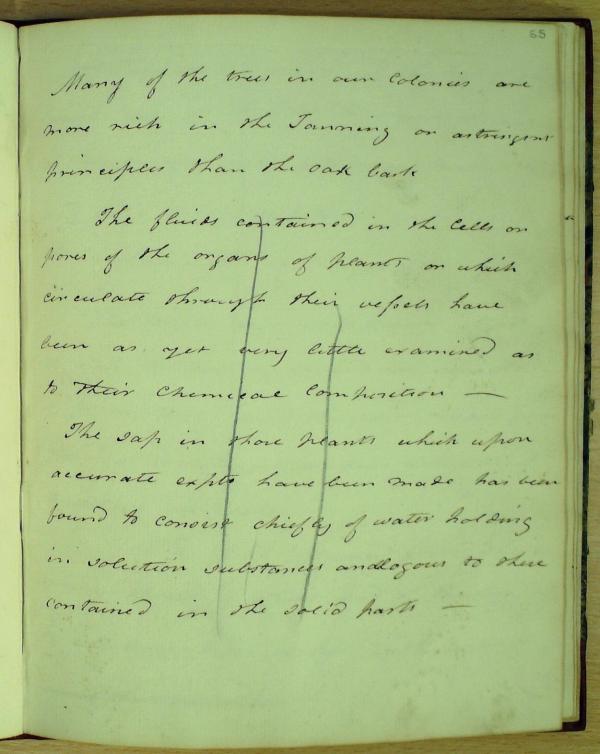 65
Many of the trees in our Colonies are
more rich in the Tanning or astringent
principles than the oak bark
The fluids contained in the Cells or
pores of the organs of plants or which
circulate through their vessels have
been as yet very little examined as
to their Chemical Composition —
The sap in those plants which upon
accurate expts have been made has been
found to consist chiefly of water holding
in solution substances analogous to those
contained in the solid parts —